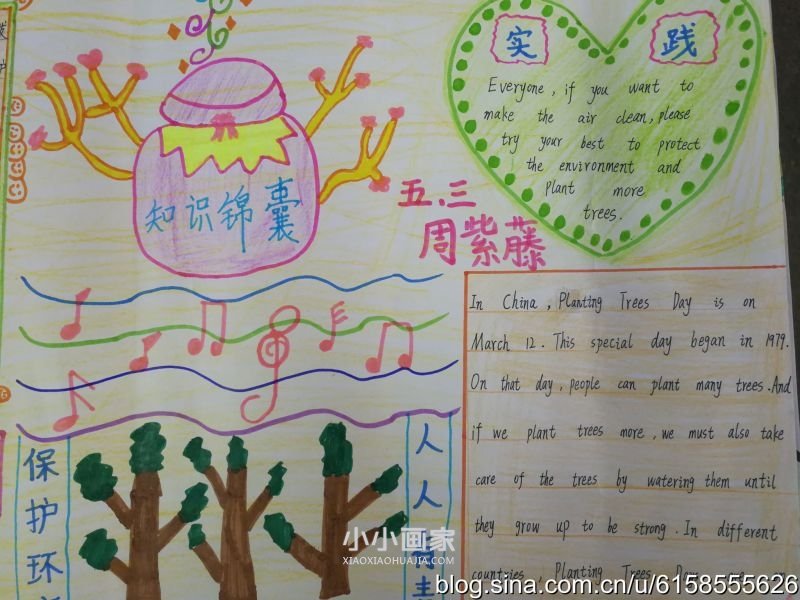 实 践
Everyone, if you want to
make the air clean, please
try your best to protect
the environment and
plant more
trees.
知识锦囊
五.三
周紫藤
In China, Planting Trees Day is on
March 12. This special day began in 1979.
On that day, people can plant many trees. And
if we plant trees more, we must also take
care of the trees by watering them until
they grow up to be strong. In different
countries, Planting Trees Day
保护环
人人
小小画家
XIAOXIAOHUAJIA.COM
blog.sina.com.cn/u/6158555626